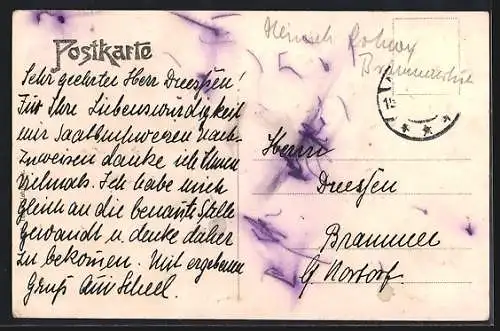 Postkarte
Sehr geehrter Herr Druessen!
Für Ihre Liebenswürdigkeit
mir nach-
zuweisen danke ich Ihnen
vielmals. Ich habe mich
gleich an die benannte Stelle
gewandt u. denke daher
zu bekommen. Mit ergebenem
Gruß
Herrn
Druessen
Brammer
Nortorf.